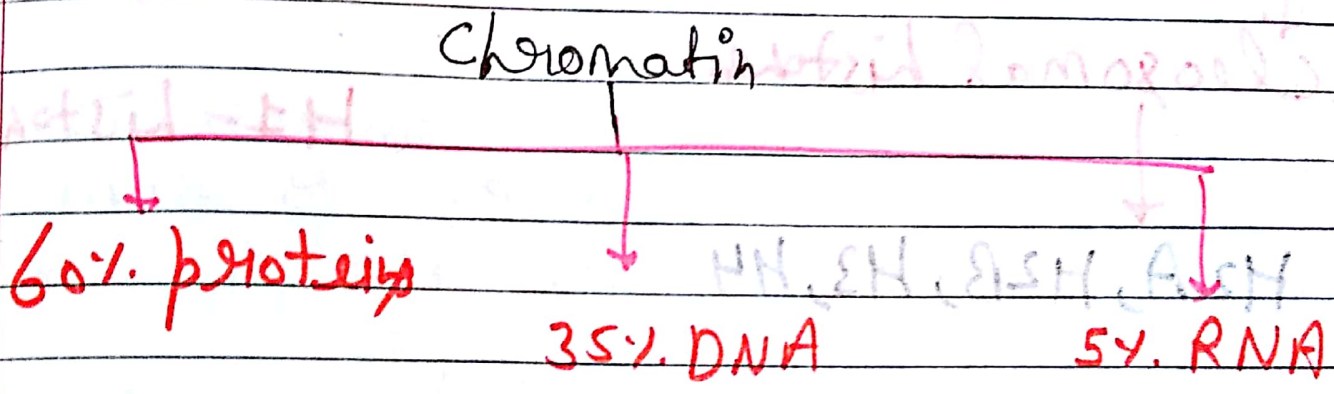 Chromatin
60%. proteins
35%. DNA
5%. RNA